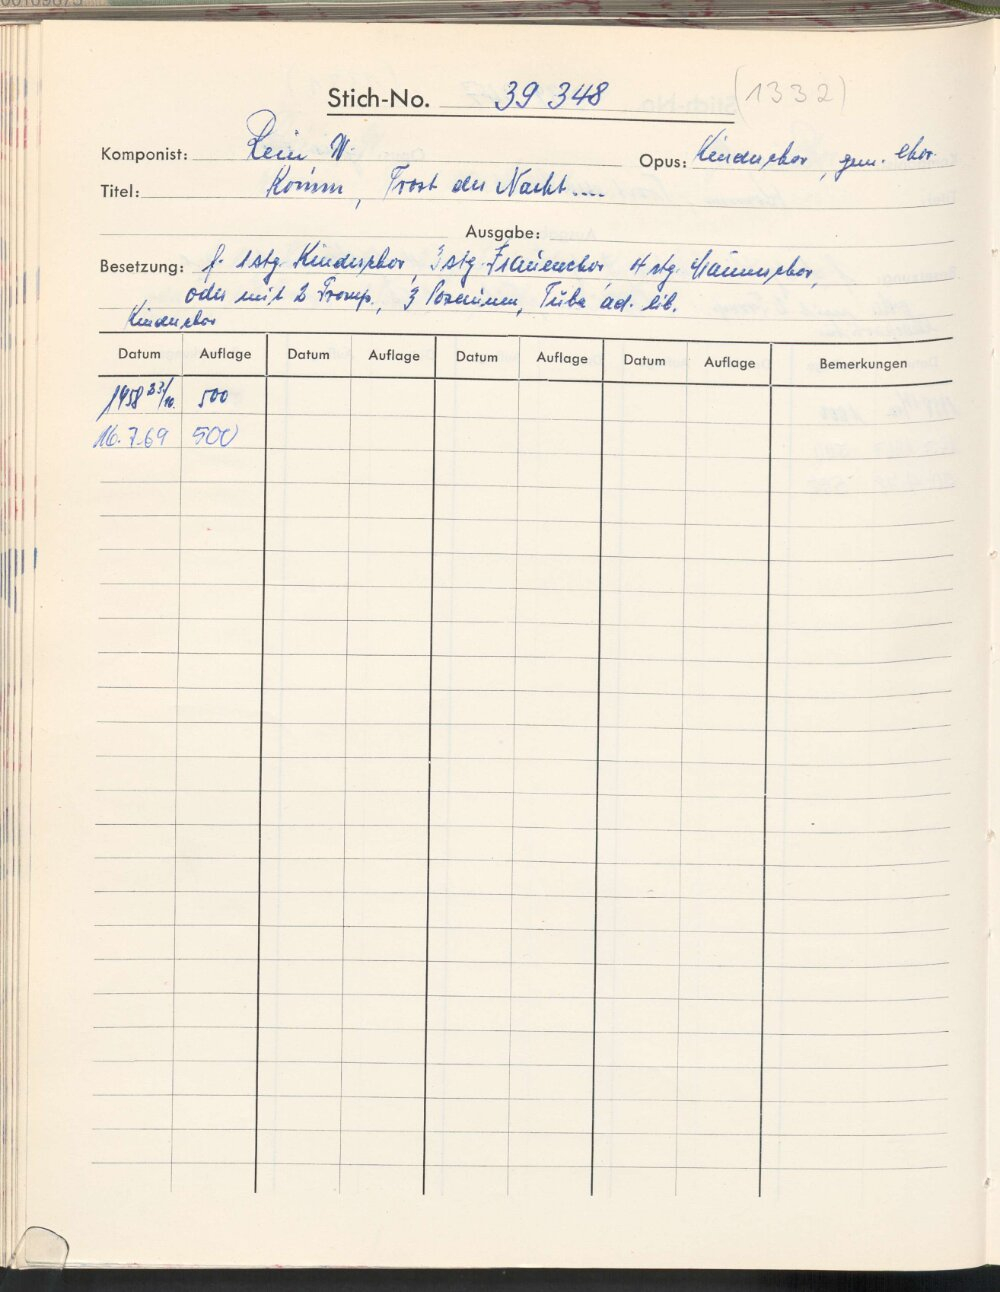 Stich-No. 39 348 (1332)
Komponist: Rein W. Opus: Kinderchor, gem. Chor.
Titel: Komm, Trost der Nacht....
Ausgabe:
Besetzung: f. 1stg. Kinderchor, 3stg. Frauenchor, 4 stg. Männerchor,
oder mit 2 Tromp., 3 Posaunen, Tuba ad. lib.
Kinderchor
Datum Auflage Datum Auflage Datum Auflage Datum Auflage Bemerkungen
1958 23/10. 500
16.7.69 500